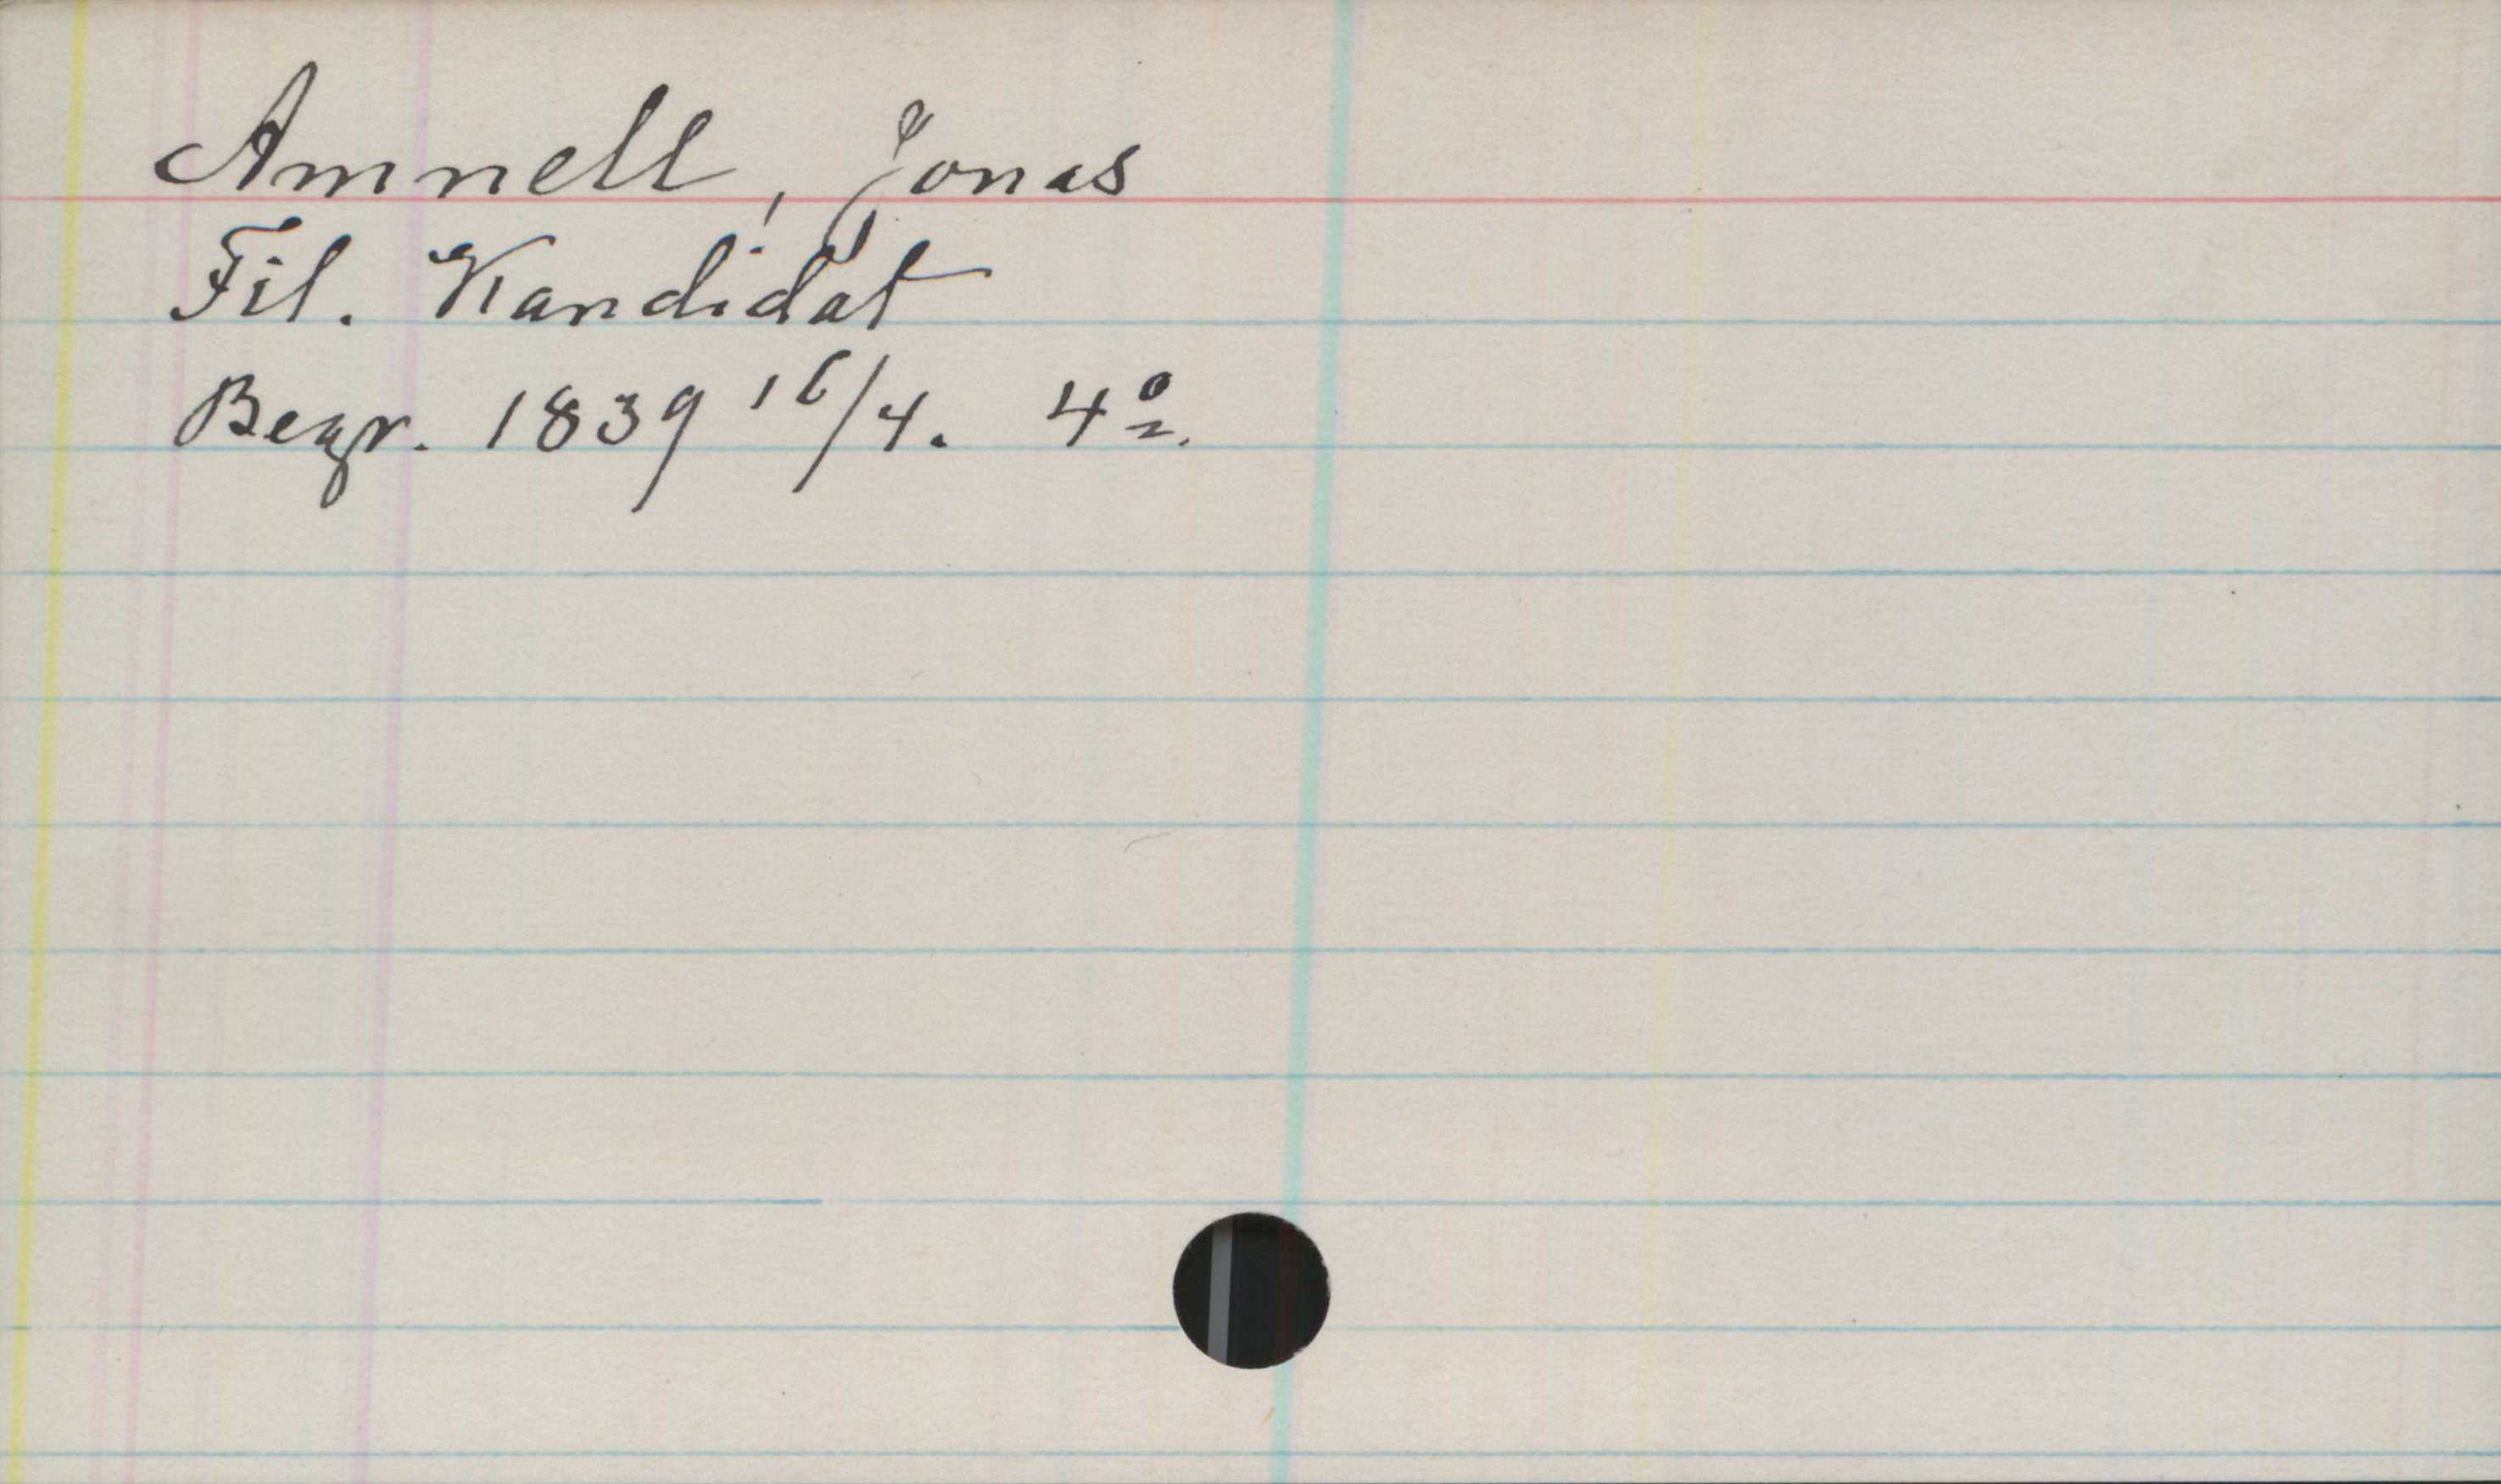 Amnell, Jonas
Fil. Kandidat
Begr. 1839 16/4. 4º.